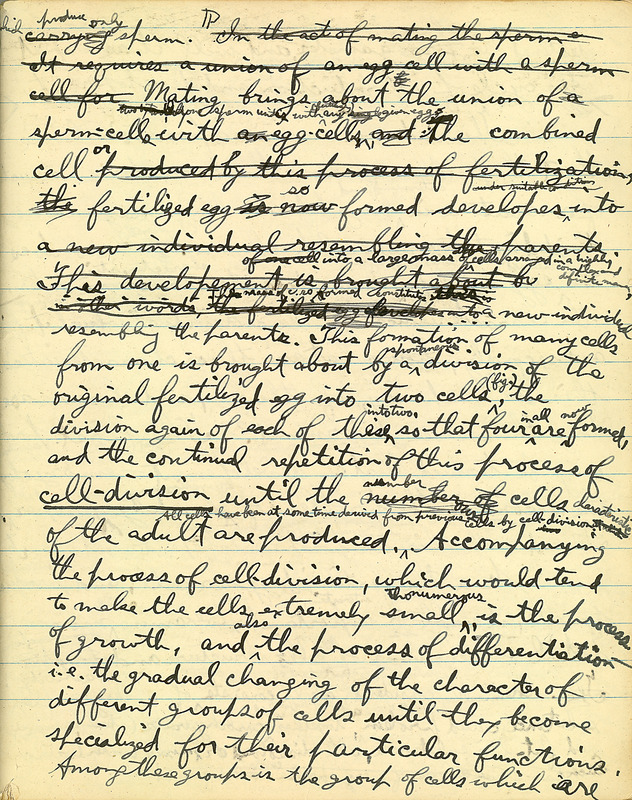 which produce only
carrying sperm. In the act of mating the sperm
It requires a union of an egg cell with a sperm
cell for Mating brings about the union of a
one sperm unites with any given egg
sperm-cells with an egg-cells, and the combined
cell or produced by this process of fertilization,
under suitable condition
the fertilized egg is now so formed developes into
a new individual resembling the parents.
of one cell into a large mass of cells arranged in a highly
complex and definite manner
This developement is brought about by
in other words, the fertilized egg developes into a new individual
The mass of c. so formed constitutes
resembling the parents. This formation of many cells
from one is brought about by a spontaneous division of the
original fertilized egg into two cells, (fig. the
division again of each of these into two, so that four in all are now formed,
and the continual repetition of this process of
cell-division until the number of cells
number
of the adult are produced. Accompanying
All cells have been at some time derived from previous cells by cell-division
the process of cell-division, which would tend
to make the cells, extremely small, tho numerous is the process
of growth, and also the process of differentiation
i.e. the gradual changing of the character of
different groups of cells until they become
specialized for their particular functions.
Among these groups is the group of cells which are